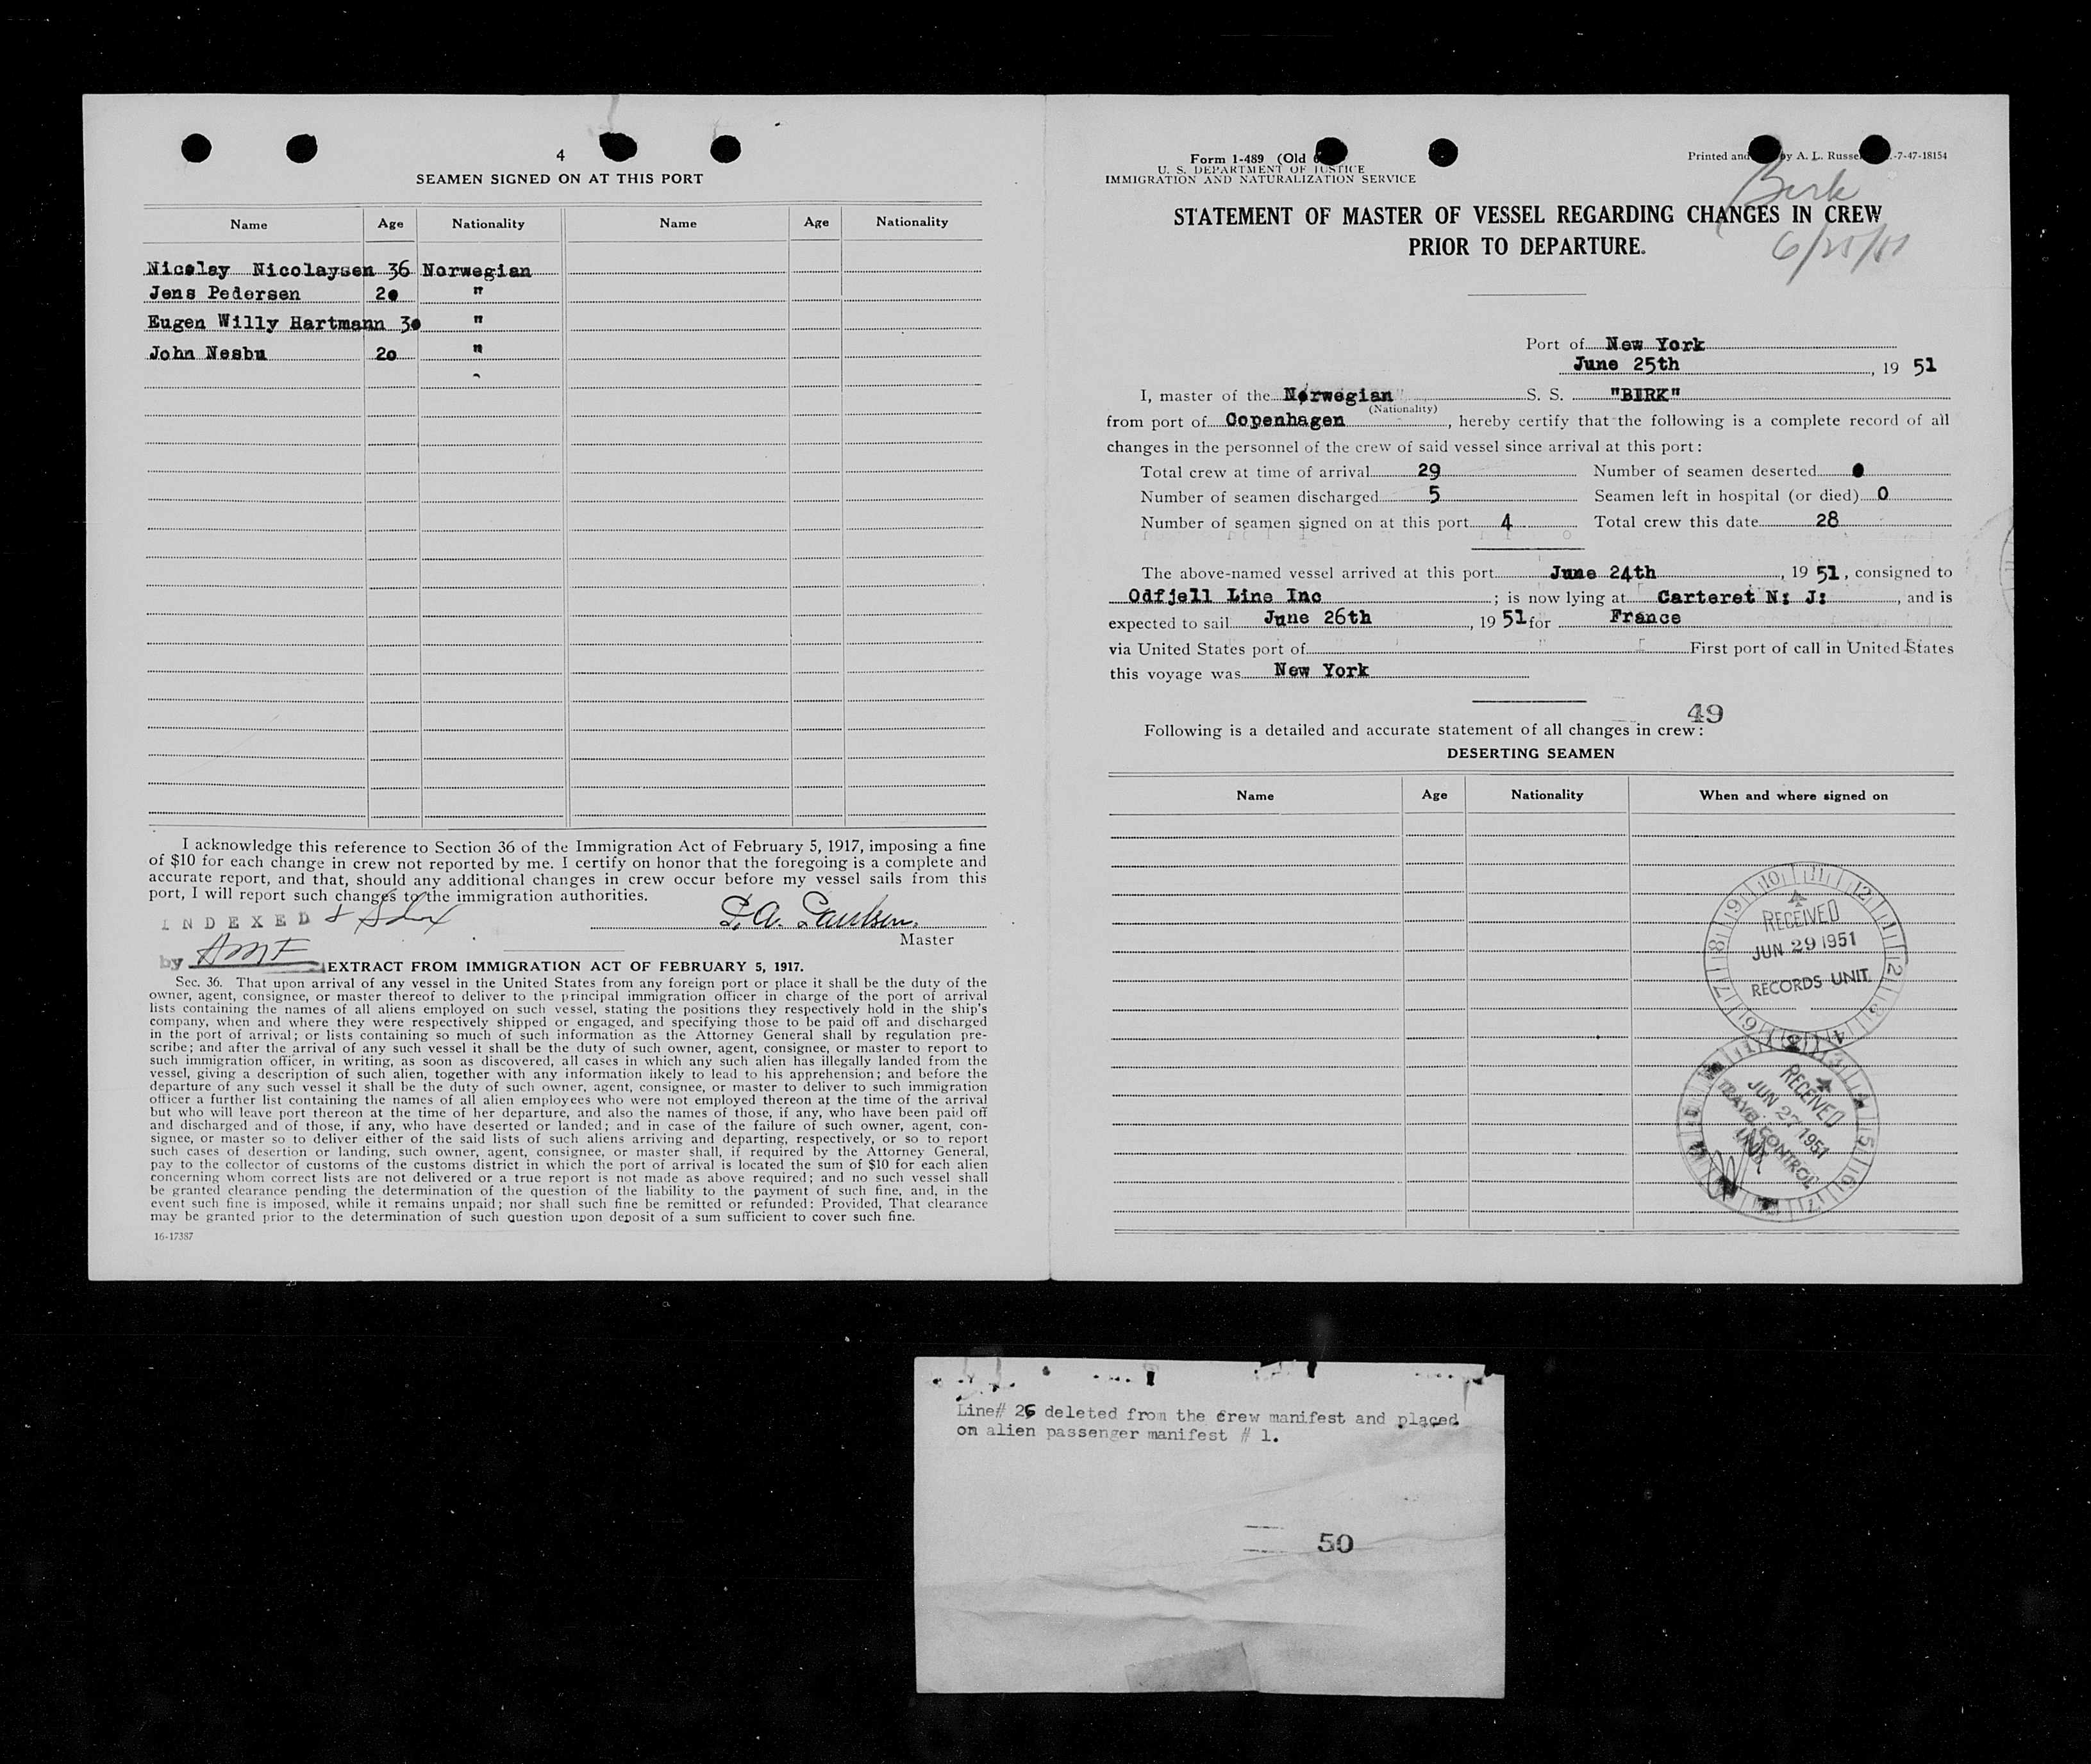 4
SEAMEN SIGNED ON AT THIS PORT
Name Age Nationality Name Age Nationality
Nicolay Nicolaysen 36 Norwegian
Jens Pedersen 20 "
Eugen Willy Hartmann 30 "
John Nesbu 20 "
I acknowledge this reference to Section 36 of the Immigration Act of February 5, 1917, imposing a fine
of $10 for each change in crew not reported by me. I certify on honor that the foregoing is a complete and
accurate report, and that, should any additional changes in crew occur before my vessel sails from this
port, I will report such changes to the immigration authorities.
INDEXED
Master
by
EXTRACT FROM IMMIGRATION ACT OF FEBRUARY 5, 1917.
Sec. 36. That upon arrival of any vessel in the United States from any foreign port or place it shall be the duty of the
owner, agent, consignee, or master thereof to deliver to the principal immigration officer in charge of the port of arrival
lists containing the names of all aliens employed on such vessel, stating the positions they respectively hold in the ship's
company, when and where they were respectively shipped or engaged, and specifying those to be paid off and discharged
in the port of arrival; or lists containing so much of such information as the Attorney General shall by regulation pre-
scribe; and after the arrival of any such vessel it shall be the duty of such owner, agent, consignee, or master to report to
such immigration officer, in writing, as soon as discovered, all cases in which any such alien has illegally landed from the
vessel, giving a description of such alien, together with any information likely to lead to his apprehension; and before the
departure of any such vessel it shall be the duty of such owner, agent, consignee, or master to deliver to such immigration
officer a further list containing the names of all alien employees who were not employed thereon at the time of the arrival
but who will leave port thereon at the time of her departure, and also the names of those, if any, who have been paid off
and discharged and of those, if any, who have deserted or landed; and in case of the failure of such owner, agent, con-
signee, or master so to deliver either of the said lists of such aliens arriving and departing, respectively, or so to report
such cases of desertion or landing, such owner, agent, consignee, or master shall, if required by the Attorney General,
pay to the collector of customs of the customs district in which the port of arrival is located the sum of $10 for each alien
concerning whom correct lists are not delivered or a true report is not made as above required; and no such vessel shall
be granted clearance pending the determination of the question of the liability to the payment of such fine, and, in the
event such fine is imposed, while it remains unpaid; nor shall such fine be remitted or refunded: Provided, That clearance
may be granted prior to the determination of such question upon deposit of a sum sufficient to cover such fine.
16-17387
Form 1-489 (Old
U. S. DEPARTMENT OF JUSTICE
IMMIGRATION AND NATURALIZATION SERVICE
Printed and by A. L. -7-47-18154
Birk
STATEMENT OF MASTER OF VESSEL REGARDING CHANGES IN CREW
PRIOR TO DEPARTURE.
6/25/51
Port of New York
June 25th, 19 51
I, master of the Norwegian S. S. "BIRK"
(Nationality)
from port of Copenhagen, hereby certify that the following is a complete record of all
changes in the personnel of the crew of said vessel since arrival at this port:
Total crew at time of arrival 29 Number of seamen deserted 0
Number of seamen discharged 5 Seamen left in hospital (or died) 0
Number of seamen signed on at this port 4 Total crew this date 28
The above-named vessel arrived at this port June 24th, 19 51, consigned to
Odfjell Line Inc; is now lying at Carteret N: J:, and is
expected to sail June 26th, 19 51 for France
via United States port of First port of call in United States
this voyage was New York
49
Following is a detailed and accurate statement of all changes in crew:
DESERTING SEAMEN
Name Age Nationality When and where signed on
RECEIVED
JUN 29 1951
RECORDS UNIT
RECEIVED
JUN 27 1951
TRAVEL CONTROL
UNIT
Line# 26 deleted from the crew manifest and placed
on alien passenger manifest # 1.
50